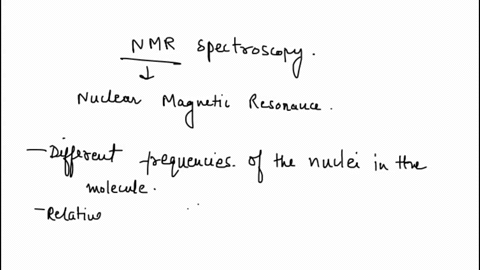 NMR spectroscopy.
Nuclear Magnetic Resonance.
- Different frequencies of the nuclei in the
molecule.
- Relative